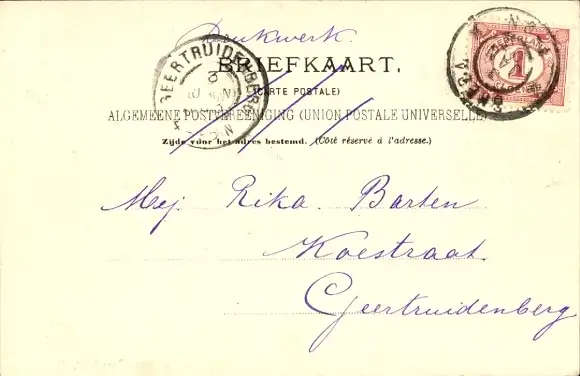 Drukwerk.
BRIEFKAART.
(CARTE POSTALE)
ALGEMEENE POSTVEREENIGING (UNION POSTALE UNIVERSELLE)
Zijde voor het adres bestemd. (Côté réservé à l'adresse.)
GEERTRUIDENBERG
NEDERLAND
1
Mej. Rika Barten
Koestraat.
Geertruidenberg